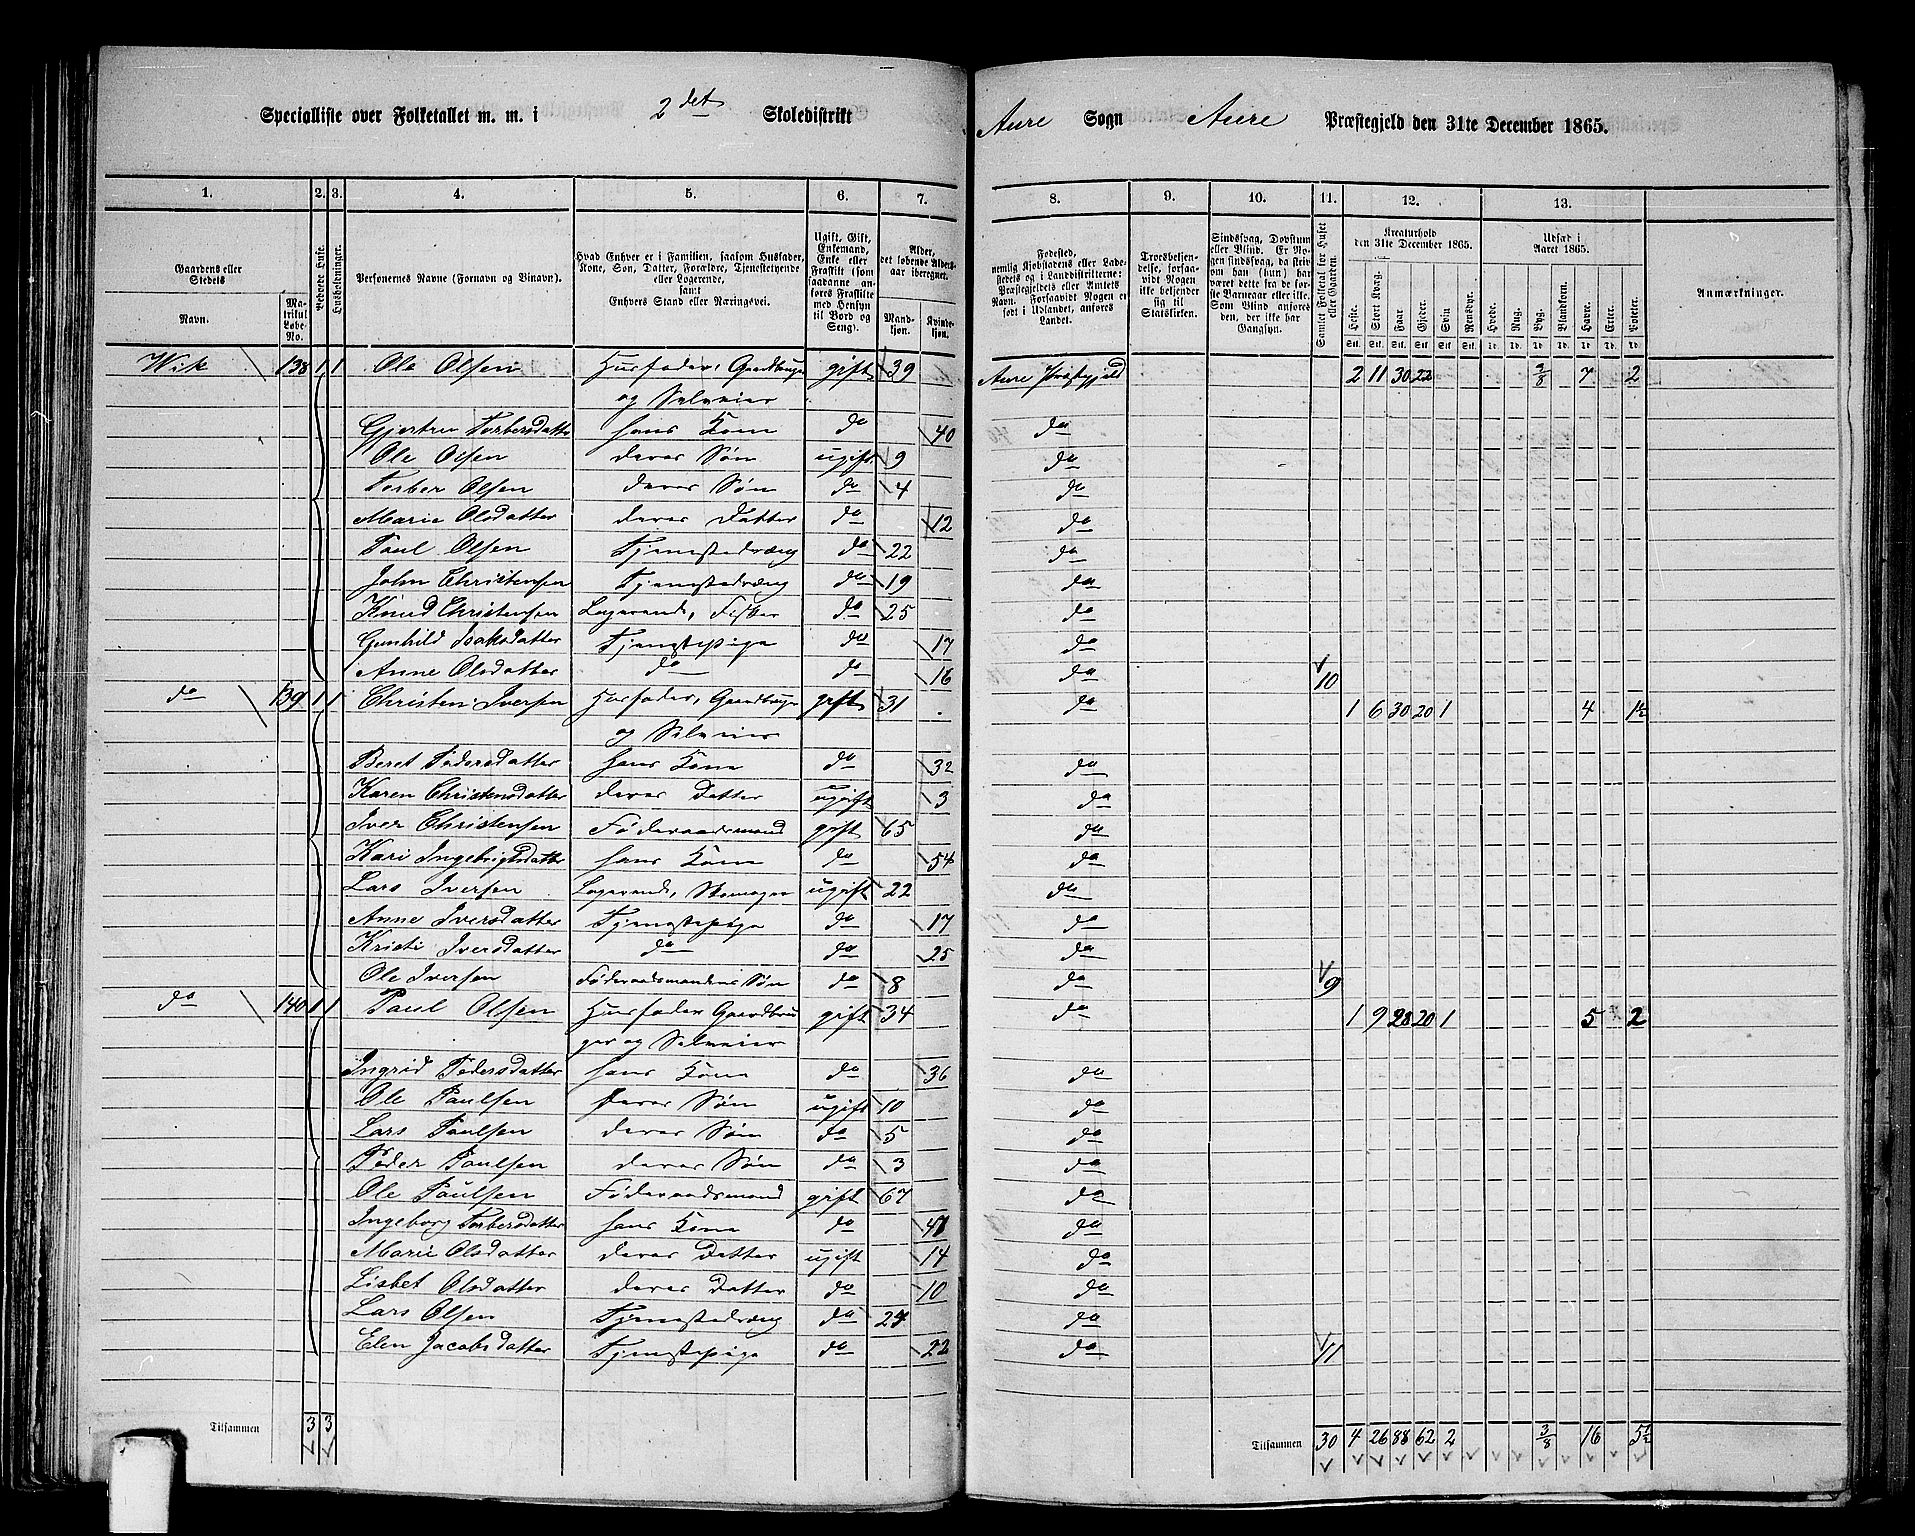 Specialliste over Folketallet m. m. i 2det Skoledistrikt Aure Sogn Aure Præstegjeld den 31te December 1865.
1. 2. 3. 4. 5. 6. 7. 8. 9. 10. 11. 12. 13.
Gaardens eller Stedets
Navn.
Matrikul Løbe-No.
Beboede Huse.
Husholdninger.
Personernes Navne (Fornavn og Binavn).
Hvad Enhver er i Familien, saasom Husfader, Kone, Søn, Datter, Forældre, Tjenestetyende eller Logerende, samt Enhvers Stand eller Næringsvei.
Ugift, Gift, Enkemand, Enke eller Fraskilt (som saadanne anføres Fraskilte med Hensyn til Bord og Seng).
Alder, det løbende Aldersaar iberegnet.
Mandkjøn. Kvindekjøn.
Fødested, nemlig Kjøbstadens eller Ladestedets og i Landdistrikterne: Præstegjeldets eller Amtets Navn. Forsaavidt Nogen er født i Udlandet, anføres Landet.
Troesbekjendelse, forsaavidt Nogen ikke bekjender sig til Statskirken.
Sindssvag, Døvstum eller Blind. Er Nogen sindssvag, da skrives han (hun) har været det fra de første Barneaar eller ikke. Som Blind anføres den, der ikke har Gangsyn.
Samlet Folketal for Huset eller Gaarden.
Kreaturhold den 31te December 1865.
Heste. Stort Kvæg. Faar. Gjeder. Svin. Rensdyr.
Udsæd i Aaret 1865.
Hvede. Rug. Byg. Blandkorn. Havre. Erter. Poteter.
Anmærkninger.
Wik 138 1 1 Ole Olsen Husfader, Gaardbruger gift 39 Aure Præstegjeld 2 11 30 22 3/8 7 2
og Selveier
Gjertru Torbersdatter hans Kone do 40 do
Ole Olsen deres Søn ugift 9 do
Torber Olsen deres Søn do 4 do
Marie Olsdatter deres Datter do 12 do
Paul Olsen Tjenestedræng do 22 do
John Christensen Tjenestedræng do 19 do
Knud Christensen Logerende, Fisker do 25 do
Gunhild Isaksdatter Tjenestepige do 17 do
Anne Olsdatter do do 16 do 10
do 139 1 1 Christen Iversen Husfader, Gaardbruger gift 31 do 1 6 30 20 1 4 1½
og Selveier
Beret Pedersdatter hans Kone do 32 do
Karen Christensdatter deres Datter ugift 3 do
Iver Christensen Føderaadsmand gift 65 do
Kari Ingebrigtsdatter hans Kone do 54 do
Lars Iversen Logerende, Skomager ugift 22 do
Anne Iversdatter Tjenestepige do 17 do
Kristi Iversdatter do do 25 do
Ole Iversen Føderaadsmandens Søn do 8 do 9
do 140 1 1 Paul Olsen Husfader Gaardbru gift 34 do 1 9 28 20 1 5 2
ger og Selveier
Ingrid Pedersdatter hans Kone do 36 do
Ole Paulsen deres Søn ugift 10 do
Lars Paulsen deres Søn do 5 do
Peder Paulsen deres Søn do 3 do
Ole Paulsen Føderaadsmand gift 67 do
Ingeborg Torbersdatter hans Kone do do
Marie Olsdatter deres Datter ugift 14 do
Lisbet Olsdatter deres Datter do 10 do
Lars Olsen Tjenestedræng do 24 do
Elen Jacobsdatter Tjenestepige do 22 do 11
Tilsammen 3 3 Tilsammen 30 4 26 88 62 2 3/8 16 5½